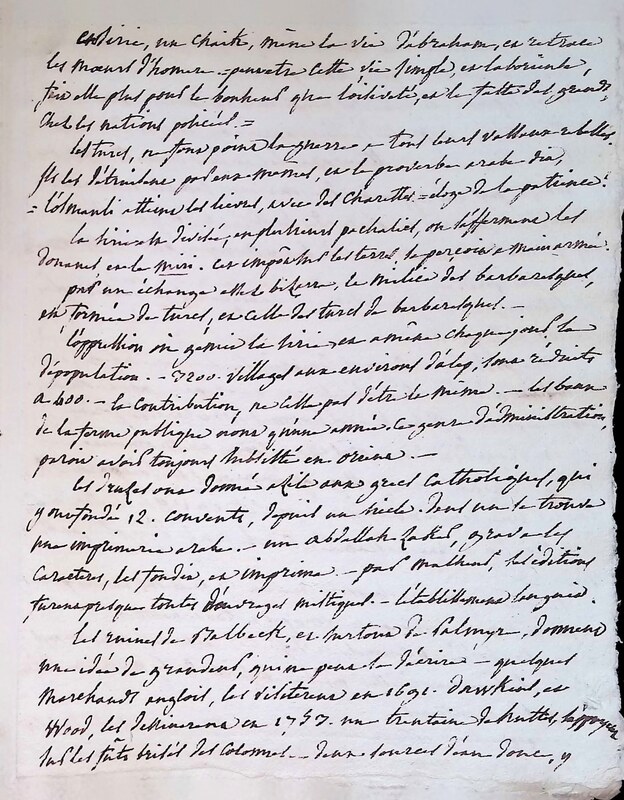 en Sirie, un Chaik, mène la vie d'abraham, et retrace
les mœurs d'homere. - peutetre cette vie simple, et laborieuse,
fait elle plus pour le bonheur que l'oisiveté, et le faste des grands,
chez les nations policées. =
les turcs, ne font point la guerre a tous leurs vassaux rebelles.
ils les détruisent par eux mêmes, et le proverbe arabe dit,
= l'osmanli atteint les lievres, avec des charettes = eloge de la patience.
la Sirie est divisée, en plusieurs pachalics, on l'afferme les
douanes, et le miri. cet impôt sur les terres, se percoit a main armée.
par un échange assez bizarre, la milice des barbaresques,
est formée de turcs, et celle des turcs de barbaresques. -
l'oppression où gémit la Sirie en amène chaque jour la
dépopulation. - 3200. villages aux environs d'alep, sont réduits
a 400. - la contribution, ne cesse pas d'être la même. - les baux
de la ferme publique n'ont qu'une année. ce genre d'administration,
paroit avoir toujours subsisté en orient. -
les druzes ont donné asile aux grecs catholiques, qui
y ont fondé 12. couvents, depuis un siecle. dans un se trouve
une imprimerie arabe. - un abdallah Zaker, grava les
caracteres, les fondit, et imprima. - par malheur, les éditions
furent presque toutes d'ouvrages mistiques. - l'établissement languit.
les ruines de Balbeck, et surtout de Palmyr, donnent
une idée de grandeur, qui ne peut se décrire - quelques
marchands anglois, les visiterent en 1691. dawkins, et
Wood, les dessinerent en 1757. une trentaine de huttes, s'appuyent
sur les futs brisés des colonnes. - deux sources d'eau douce, y